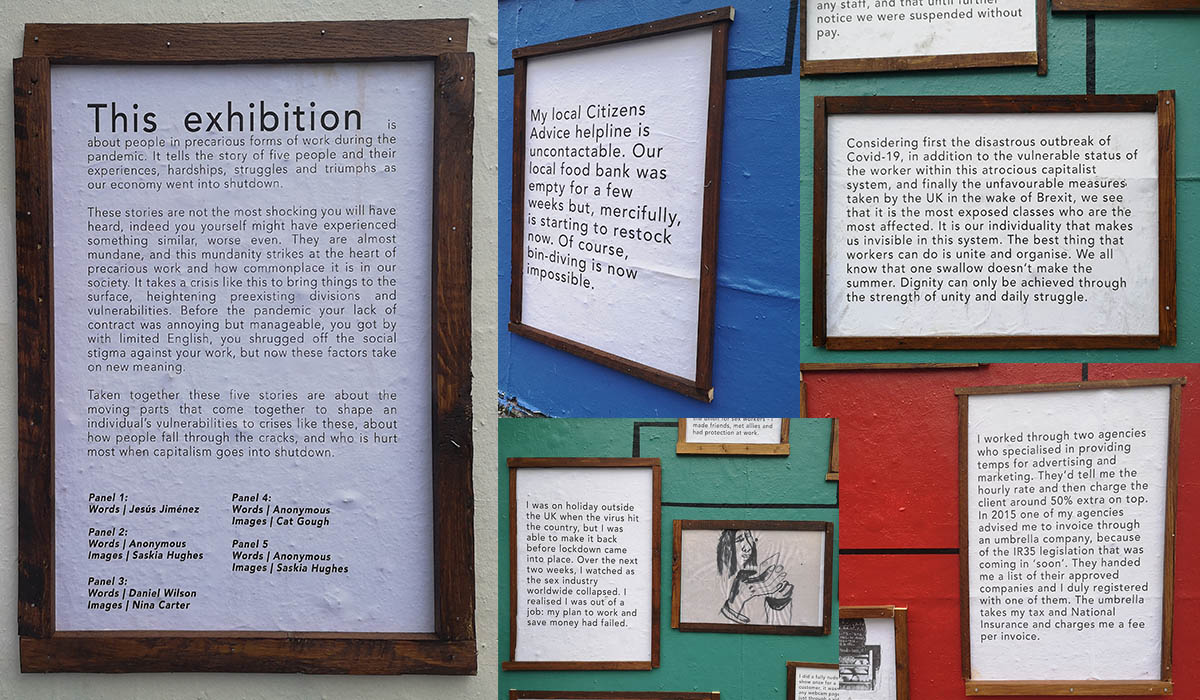 This exhibition is
about people in precarious forms of work during the
pandemic. It tells the story of five people and their
experiences, hardships, struggles and triumphs as
our economy went into shutdown.
These stories are not the most shocking you will have
heard, indeed you yourself might have experienced
something similar, worse even. They are almost
mundane, and this mundanity strikes at the heart of
precarious work and how commonplace it is in our
society. It takes a crisis like this to bring things to the
surface, heightening preexisting divisions and
vulnerabilities. Before the pandemic your lack of
contract was annoying but manageable, you got by
with limited English, you shrugged off the social
stigma against your work, but now these factors take
on new meaning.
Taken together these five stories are about the
moving parts that come together to shape an
individual's vulnerabilities to crises like these, about
how people fall through the cracks, and who is hurt
most when capitalism goes into shutdown.
Panel 1:
Words | Jesús Jiménez
Panel 2:
Words | Anonymous
Images | Saskia Hughes
Panel 3:
Words | Daniel Wilson
Images | Nina Carter
Panel 4:
Words | Anonymous
Images | Cat Gough
Panel 5
Words | Anonymous
Images | Saskia Hughes
My local Citizens
Advice helpline is
uncontactable. Our
local food bank was
empty for a few
weeks but, mercifully,
is starting to restock
now. Of course,
bin-diving is now
impossible.
any staff, and that until further
notice we were suspended without
pay.
Considering first the disastrous outbreak of
Covid-19, in addition to the vulnerable status of
the worker within this atrocious capitalist
system, and finally the unfavourable measures
taken by the UK in the wake of Brexit, we see
that it is the most exposed classes who are the
most affected. It is our individuality that makes
us invisible in this system. The best thing that
workers can do is unite and organise. We all
know that one swallow doesn't make the
summer. Dignity can only be achieved through
the strength of unity and daily struggle.
the union for sex workers - I
made friends, met allies and
had protection at work.
I was on holiday outside
the UK when the virus hit
the country, but I was
able to make it back
before lockdown came
into place. Over the next
two weeks, I watched as
the sex industry
worldwide collapsed. I
realised I was out of a
job: my plan to work and
save money had failed.
I did a fully nude
show once for a
customer, it was
any webcam
I worked through two agencies
who specialised in providing
temps for advertising and
marketing. They'd tell me the
hourly rate and then charge the
client around 50% extra on top.
In 2015 one of my agencies
advised me to invoice through
an umbrella company, because
of the IR35 legislation that was
coming in 'soon'. They handed
me a list of their approved
companies and I duly registered
with one of them. The umbrella
takes my tax and National
Insurance and charges me a fee
per invoice.